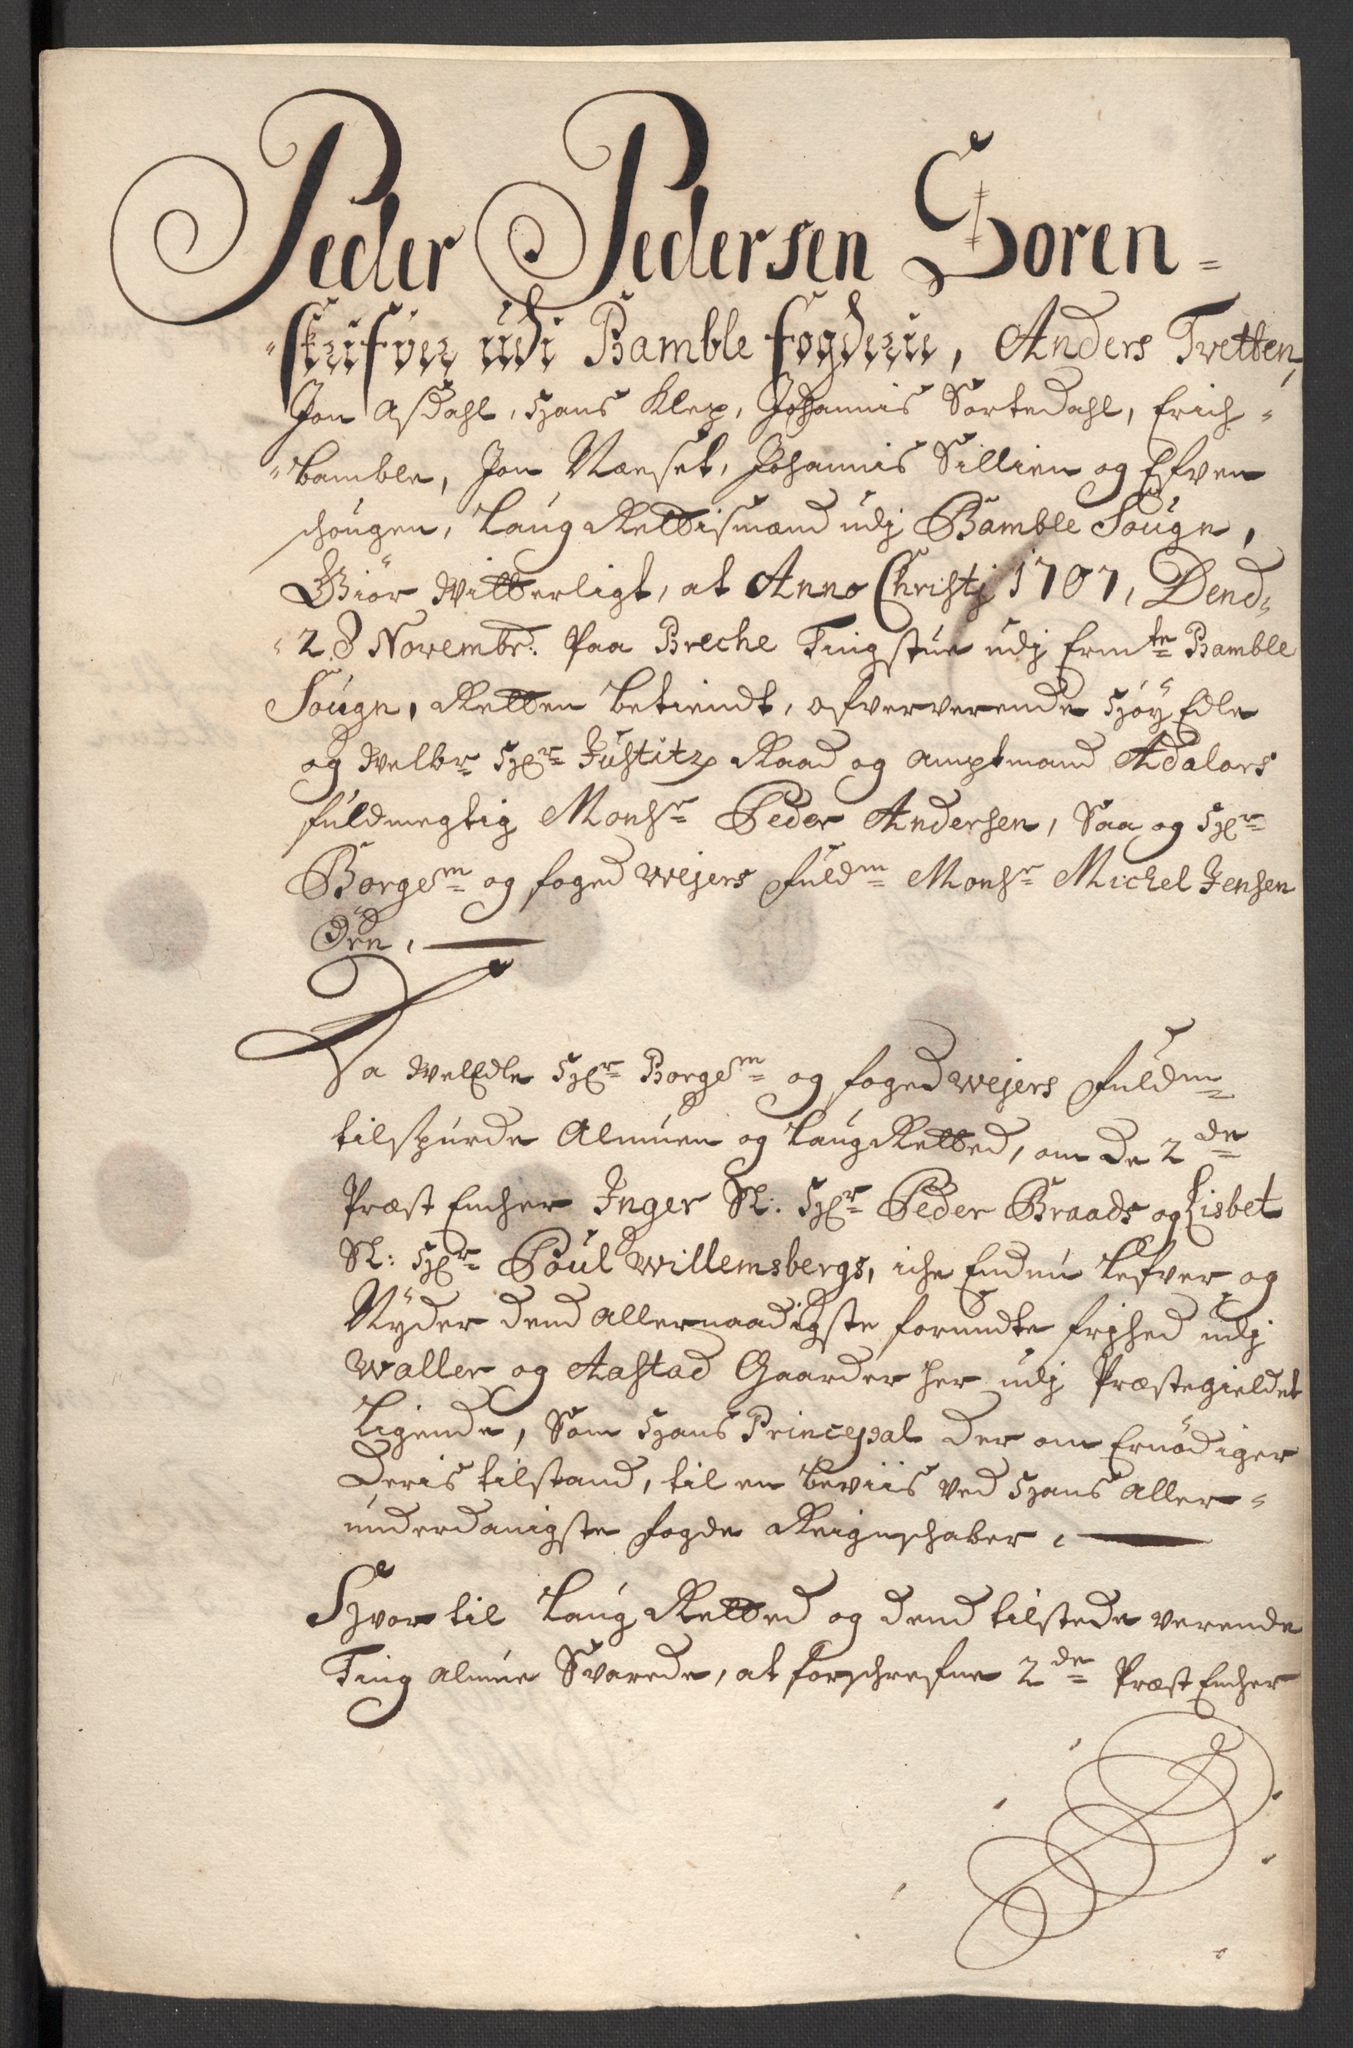 Peder Pedersen Soren-
skrifver udi Bamble fogderie, Anders Tvetten,
Jon Asdahl, Hans Klep, Johannis Sortedahl, Erich-
Bamble, Jon Næset, Johannis Sillien og Efven
schougen, LaugRettismænd udj Bamble Sougn,
Giör Witterligt, at Anno Christj 1707, Dend-
28 Novembr: Paa Breche Tingstue udj Ermte Bamble
Sougn, Retten betiendt, ofververende HöyEdle
og Welbr Hr Justitz Raad og Amptmand Adalors
fuldmegtig Monsr Peder Andersen, Saa og Hr
Borgem og foged Wejers fuldm Monsr Michel Jensen
Örn,
Da WelEdle Hr Borgem og foged Wejers fuldm
tilspurde Almuen og LaugRetted, om De 2de
Præst Encher Inger Sl: Hr Peder Braads og Lisbet
Sl: Hr Poul Willemsbergs, iche Endnu Lefver og
Nyder dend allernaadigste forundte frjhed udj
Waller og Aastad Gaarder her udj Præstegieldet
Ligende, Som Hans Princepal der om Ernödiger
Deris tilstand, til en beviis ved Hans aller-
underdanigste fogde Reignschaber,
Hvor til LaugRetted og dend tilstede verende
Ting almue Svarede, at forschrefne 2de Præst Encher